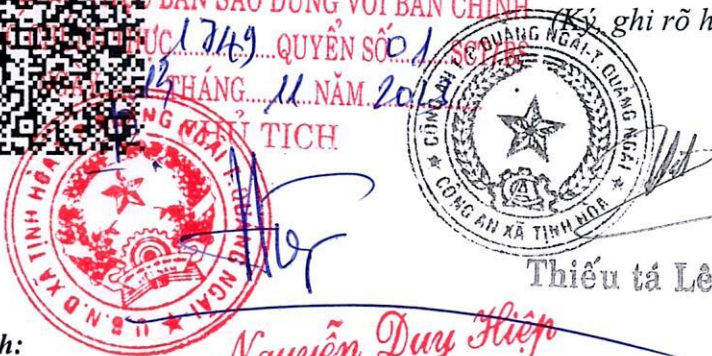 BẢN SAO ĐÚNG VỚI BẢN CHÍNH
(Ký, ghi rõ h
THỰC 1749 QUYỂN SỐ 01 SCT/BS
THÁNG 11 NĂM
CHỦ TỊCH
U.B.N.D XÃ TỊNH HÒA
QUẢNG NGÃI
TP QUẢNG NGÃI-T. QUẢNG NGÃI
CÔNG AN XÃ TỊNH HÒA
Thiếu tá Lê
Nguyễn Duy Hiệp
h: